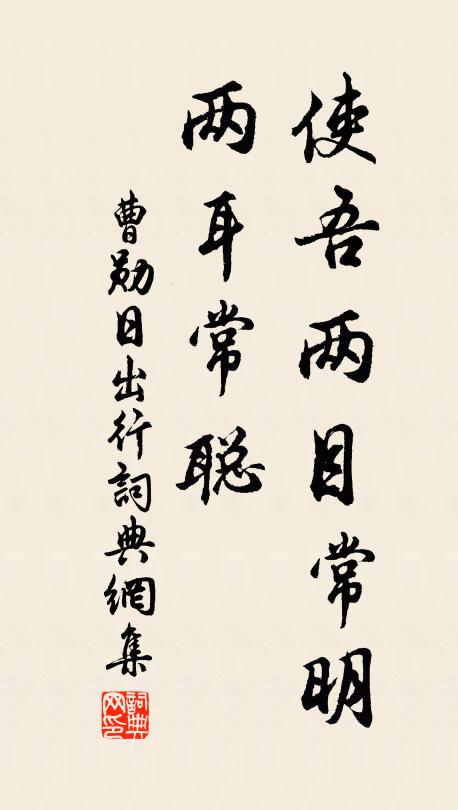 使吾两目常明
两耳常聪
曹勋日出行詞典網集
詞典
网印